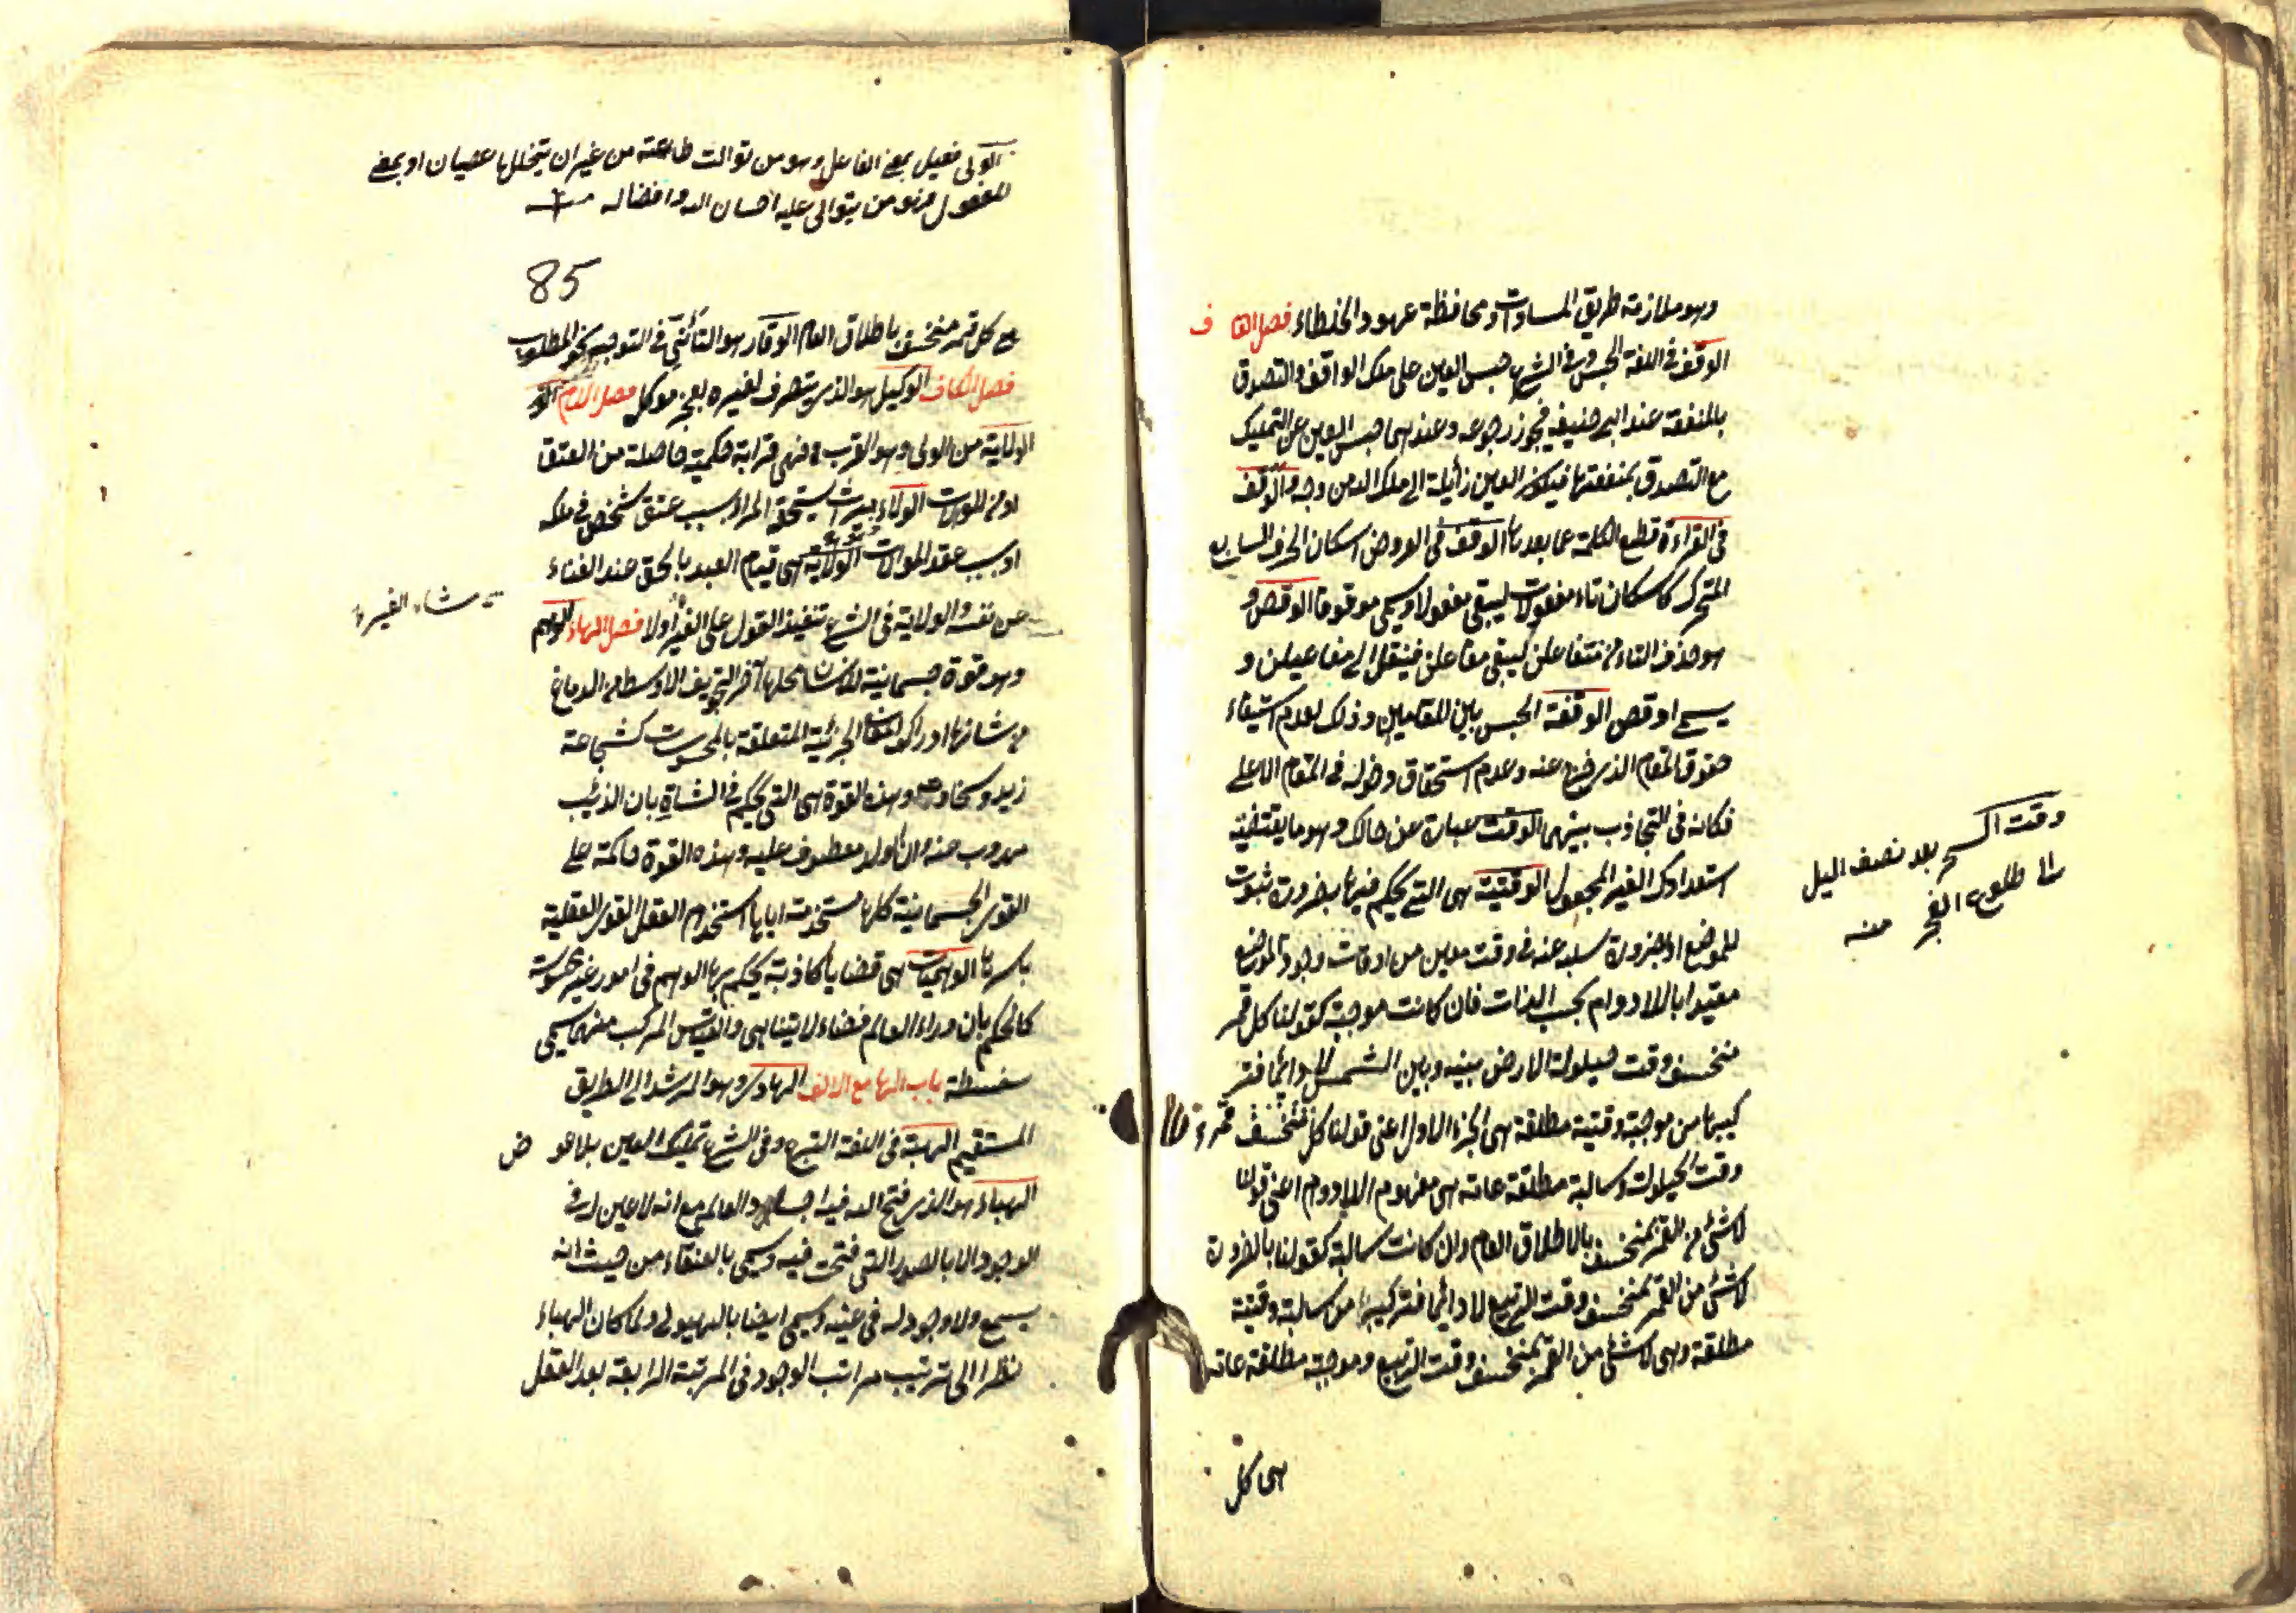 وهو ملازمة طريق المساوات ومحافظة عهود الخلطاء فصل القاف
الوقف فى اللغة الحبس وفى الشرع حبس العين على ملك الواقف والتصدق
بالمنفعة عند ابى حنيفه فيجوز رجوعه وعندهما حبس العين عن التمليك
مع التصدق بمنفعتها فيكون العين زائلة الى ملك الله من وجه والوقف
فى القراءة قطع الكلمة عما بعدها الوقف فى العروض اسكان الحرف السابع
المتحرك كاسكان تاء مفعولات ليبقى مفعولا ويسمى موقوفا الوقص و
هو حذف التاء من متفاعلن ليبقى مفاعلن فينقل الى مفاعيلن و
يسمى اوقص الوقفة الحبس بين المقامين وذلك لعدم استيفاء
حقوق المقام الذى خرج عنه وعدم استحقاق دخوله فى المقام الاعلى
فكانه فى التجاذب بينهما الوقت عبارة عن حالك وهو ما يقتضيه
استعدادك الغير المجعول الوقتية هى التى يحكم فيها بضرورة ثبوت
للموضوع او بضرورة سلبه عنه فى وقت معين من اوقات وجود الموضوع
مقيدا باللادوام بحسب الذات فان كانت موجبة كقولنا كل قمر
منخسف وقت حيلولة الارض بينه وبين الشمس لا دائما فتر
كيبها من موجبة وقتية مطلقة هى الجزء الاول اعنى قولنا كل منخسف قمر
وقت الحيلولة وسالبة مطلقة عامة هى مفهوم اللادوام اعنى قولنا
لا شئ من القمر بمنخسف بالاطلاق العام وان كانت سالبة كقولنا بالضرورة
لا شئ من القمر بمنخسف وقت التربيع لا دائما فتركيبها من سالبة وقتية
مطلقة وهى لا شئ من القمر بمنخسف وقت التربيع وموجبة مطلقة عامة
هى كل
وقت السحر بعد نصف اليل
الى طلوع الفجر منه
الولى فعيل بمعنى الفاعل وهو من توالت طاعته من غير ان يتخللها عصيان او بمعنى
المفعول فهو من يتوالى عليه احسان الله وافضاله
85
كل قمر منخسف باطلاق العام الوقار هو التأنى فى التوجه نحو المطلوب
فصل الكاف الوكيل هو الذى يتصرف لغيره بعجز موكل فصل اللام
الولاية من الولى وهو القرب فهى قرابة حكمية حاصلة من العتق
او من الموالات الولاء ميراث يستحقه المرأ بسبب عتق شخص فى ملكه
او بسبب عقد الموالات الولاية هى قيام العبد بالحق عند الفناء
عن نفسه والولاية فى الشرع تنفيذ القول على الغير اولا فصل الهاء الوهم
شاء الغير
وهو قوة جسمانية للانسان محلها آخر التجويف الاوسط من الدماغ
من شانها ادراك المعانى الجزئية المتعلقة بالمحسوسات كشجاعة
زيد وسخاوته وهذه القوة هى التى تحكم فى الشاة بان الذئب
مهروب عنه وان الولد معطوف عليه وهذه القوة حاكمة على
القوى الجسمانية كلها مستخدمة اياها استخدام العقل القوى العقلية
باسرها الوهميات هى قضايا كاذبة يحكم بها الوهم فى امور غير محسوسة
كالحكم بان وراء العالم فضاء لا يتناهى والقياس المركب منها يسمى
سفسطة باب الها مع الالف الهادى وهو المرشد الى الطريق
المستقيم الهبة فى اللغة التبرع وفى الشرع تمليك العين بلا عوض
الهباء هو الذى فتح الله فيه اجساد العالم مع انه لا عين له فى
الوجود الا بالصور التى فتحت فيه ويسمى بالعنقاء من حيث انه
يسمع ولا وجود له فى عينه ويسمى ايضا بالهيولى ولما كان الهباء
نظرا الى ترتيب مراتب الوجود فى المرتبة الرابعة بعد العقل